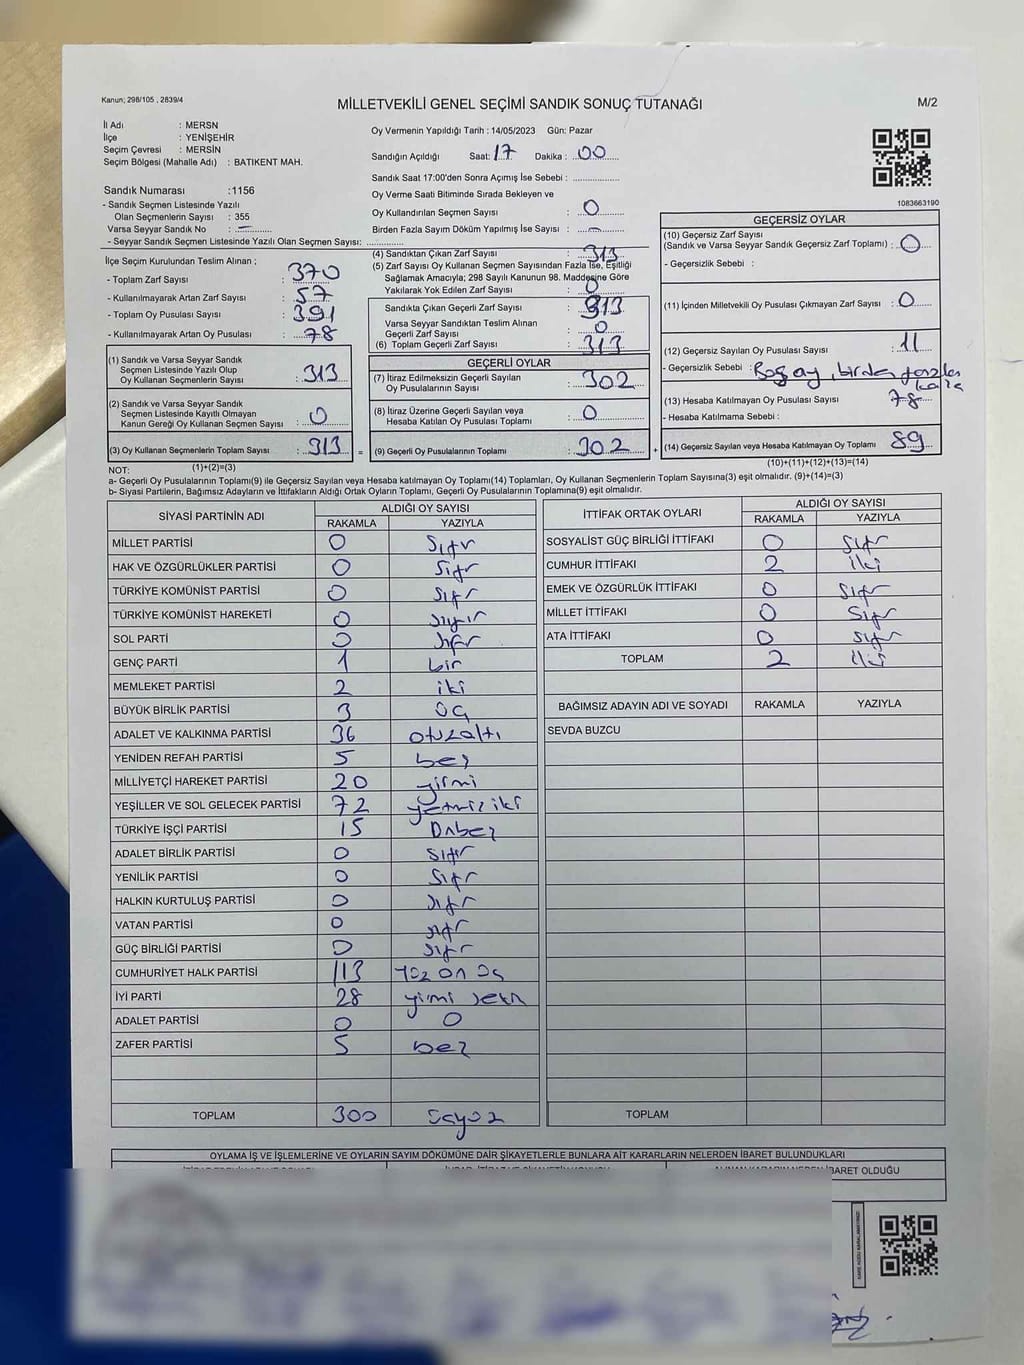 Kanun; 298/105 , 2839/4
MİLLETVEKİLİ GENEL SEÇİMİ SANDIK SONUÇ TUTANAĞI
M/2
İl Adı : MERSN
İlçe : YENİŞEHİR
Seçim Çevresi : MERSİN
Seçim Bölgesi (Mahalle Adı) : BATIKENT MAH.
Sandık Numarası :1156
- Sandık Seçmen Listesinde Yazılı
Olan Seçmenlerin Sayısı : 355
Varsa Seyyar Sandık No : -
- Seyyar Sandık Seçmen Listesinde Yazılı Olan Seçmen Sayısı:
Oy Vermenin Yapıldığı Tarih : 14/05/2023 Gün: Pazar
Sandığın Açıldığı Saat: 17 Dakika : 00
Sandık Saat 17:00'den Sonra Açımış İse Sebebi :
Oy Verme Saati Bitiminde Sırada Bekleyen ve
Oy Kullandırılan Seçmen Sayısı : 0
Birden Fazla Sayım Döküm Yapılmış İse Sayısı : -
1083663190
İlçe Seçim Kurulundan Teslim Alınan ;
- Toplam Zarf Sayısı : 370
- Kullanılmayarak Artan Zarf Sayısı : 57
- Toplam Oy Pusulası Sayısı : 391
- Kullanılmayarak Artan Oy Pusulası : 78
(1) Sandık ve Varsa Seyyar Sandık
Seçmen Listesinde Yazılı Olup
Oy Kullanan Seçmenlerin Sayısı : 313
(2) Sandık ve Varsa Seyyar Sandık
Seçmen Listesinde Kayıtlı Olmayan
Kanun Gereği Oy Kullanan Seçmen Sayısı : 0
(3) Oy Kullanan Seçmenlerin Toplam Sayısı : 313 =
(4) Sandıktan Çıkan Zarf Sayısı : 313
(5) Zarf Sayısı Oy Kullanan Seçmen Sayısından Fazla İse, Eşitliği
Sağlamak Amacıyla; 298 Sayılı Kanunun 98. Maddesine Göre
Yakılarak Yok Edilen Zarf Sayısı : 0
Sandıkta Çıkan Geçerli Zarf Sayısı : 313
Varsa Seyyar Sandıktan Teslim Alınan
Geçerli Zarf Sayısı : 0
(6) Toplam Geçerli Zarf Sayısı : 313
GEÇERLİ OYLAR
(7) İtiraz Edilmeksizin Geçerli Sayılan
Oy Pusulalarının Sayısı : 302
(8) İtiraz Üzerine Geçerli Sayılan veya
Hesaba Katılan Oy Pusulası Toplamı : 0
(9) Geçerli Oy Pusulalarının Toplamı : 302 +
GEÇERSİZ OYLAR
(10) Geçersiz Zarf Sayısı
(Sandık ve Varsa Seyyar Sandık Geçersiz Zarf Toplamı) : 0
- Geçersizlik Sebebi :
(11) İçinden Milletvekili Oy Pusulası Çıkmayan Zarf Sayısı : 0
(12) Geçersiz Sayılan Oy Pusulası Sayısı : 11
- Geçersizlik Sebebi : Boş oy, birden fazla
(13) Hesaba Katılmayan Oy Pusulası Sayısı 78
- Hesaba Katılmama Sebebi :
(14) Geçersiz Sayılan veya Hesaba Katılmayan Oy Toplamı 89
NOT: (1)+(2)=(3) (10)+(11)+(12)+(13)=(14)
a- Geçerli Oy Pusulalarının Toplamı(9) ile Geçersiz Sayılan veya Hesaba katılmayan Oy Toplamı(14) Toplamları, Oy Kullanan Seçmenlerin Toplam Sayısına(3) eşit olmalıdır. (9)+(14)=(3)
b- Siyasi Partilerin, Bağımsız Adayların ve İttifakların Aldığı Ortak Oyların Toplamı, Geçerli Oy Pusulalarının Toplamına(9) eşit olmalıdır.
SİYASİ PARTİNİN ADI ALDIĞI OY SAYISI
RAKAMLA YAZIYLA
MİLLET PARTİSİ 0 Sıfır
HAK VE ÖZGÜRLÜKLER PARTİSİ 0 Sıfır
TÜRKİYE KOMÜNİST PARTİSİ 0 Sıfır
TÜRKİYE KOMÜNİST HAREKETİ 0 Sıfır
SOL PARTİ 0 Sıfır
GENÇ PARTİ 1 bir
MEMLEKET PARTİSİ 2 iki
BÜYÜK BİRLİK PARTİSİ 3 üç
ADALET VE KALKINMA PARTİSİ 36 otuzaltı
YENİDEN REFAH PARTİSİ 5 beş
MİLLİYETÇİ HAREKET PARTİSİ 20 yirmi
YEŞİLLER VE SOL GELECEK PARTİSİ 72 yetmiş iki
TÜRKİYE İŞÇİ PARTİSİ 15 Onbeş
ADALET BİRLİK PARTİSİ 0 sıfır
YENİLİK PARTİSİ 0 Sıfır
HALKIN KURTULUŞ PARTİSİ 0 Sıfır
VATAN PARTİSİ 0 sıfır
GÜÇ BİRLİĞİ PARTİSİ 0 sıfır
CUMHURİYET HALK PARTİSİ 113 yüz on üç
İYİ PARTİ 28 yimi sekn
ADALET PARTİSİ 0 0
ZAFER PARTİSİ 5 beş
TOPLAM 300
İTTİFAK ORTAK OYLARI ALDIĞI OY SAYISI
RAKAMLA YAZIYLA
SOSYALİST GÜÇ BİRLİĞİ İTTİFAKI 0 Sıfır
CUMHUR İTTİFAKI 2 iki
EMEK VE ÖZGÜRLÜK İTTİFAKI 0 Sıfır
MİLLET İTTİFAKI 0 Sıfır
ATA İTTİFAKI 0 Sıfır
TOPLAM 2 iki
BAĞIMSIZ ADAYIN ADI VE SOYADI RAKAMLA YAZIYLA
SEVDA BUZCU
TOPLAM
OYLAMA İŞ VE İŞLEMLERİNE VE OYLARIN SAYIM DÖKÜMÜNE DAİR ŞİKAYETLERLE BUNLARA AİT KARARLARIN NELERDEN İBARET BULUNDUKLARI
İBARET OLDUĞU